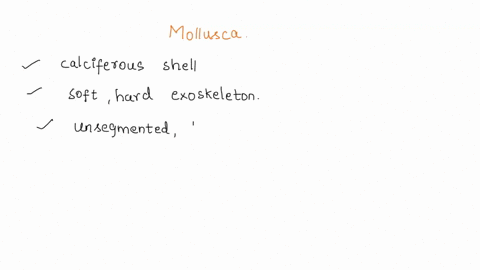 Mollusca.
calciferous shell
soft, hard exoskeleton.
unsegmented, '